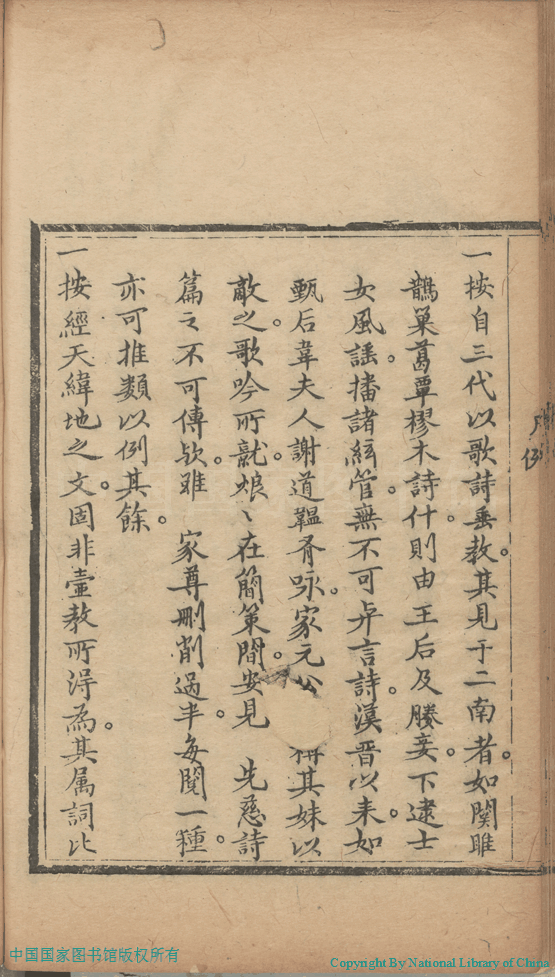 凡例
一按自三代以歌詩垂教其見于二南者如関雎
鵲巢葛覃樛木詩什則由王后及媵妾下逮士
女風謡播諸絃管無不可弁言詩漢晋以来如
甄后韋夫人謝道韞有咏家元公 稱其妹以
敵之歌吟所就烺〻在簡策間安見 先慈詩
篇之不可傳欤雖 家尊刪削過半每閱一種
亦可推類以例其餘
一按經天緯地之文固非壼教所得為其属詞比
中国国家图书馆版权所有
Copyright By National Library of China